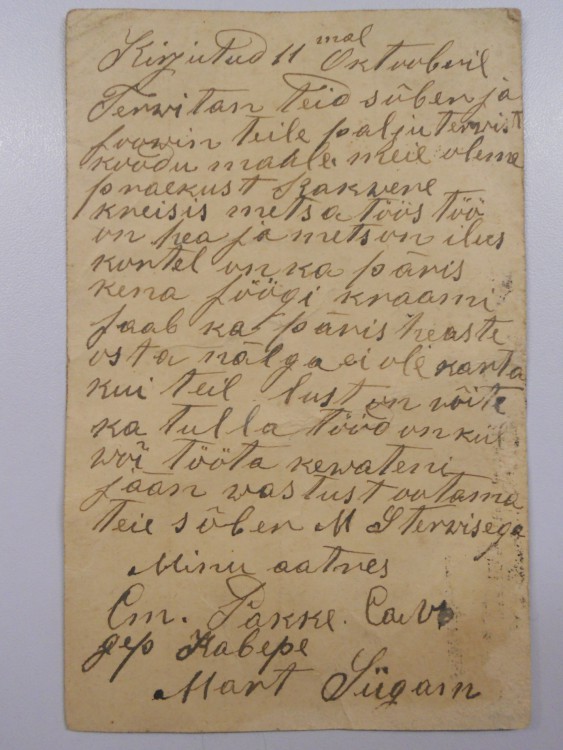 Kirjutud 11 mal Oktoobril
Terwitan teid sõber ja
soowin teile palju terwist
koõdu maale meie oleme
praekust Rakwere
kreisis metsa töös töö
on hea ja mets on ilus
kortel on ka päris
kena söögi kraami
saab ka päris heaste
osta nälga ei ole karta
kui teil lust on võite
ka tulla tööd on kül
wõi tööta kewateni
jään wastust ootama
teie sõber M S terwisega
Minu aatres
Ст. Ракке.
дер Кавере
Mart Sügam